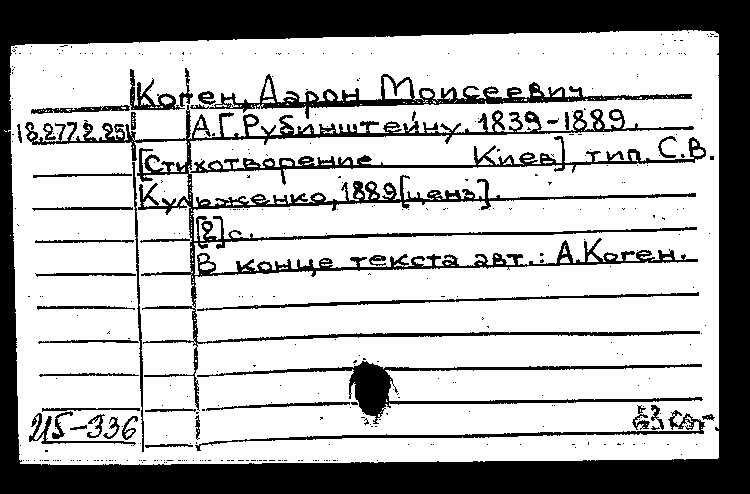 Коген, Аарон Моисеевич
18.277.2.251
А.Г.Рубинштейну. 1839-1889.
[Стихотворение. Киев], тип. С.В.
Кульженко, 1889 [ценз.].
[2] с.
В конце текста авт.: А.Коген.
215-336